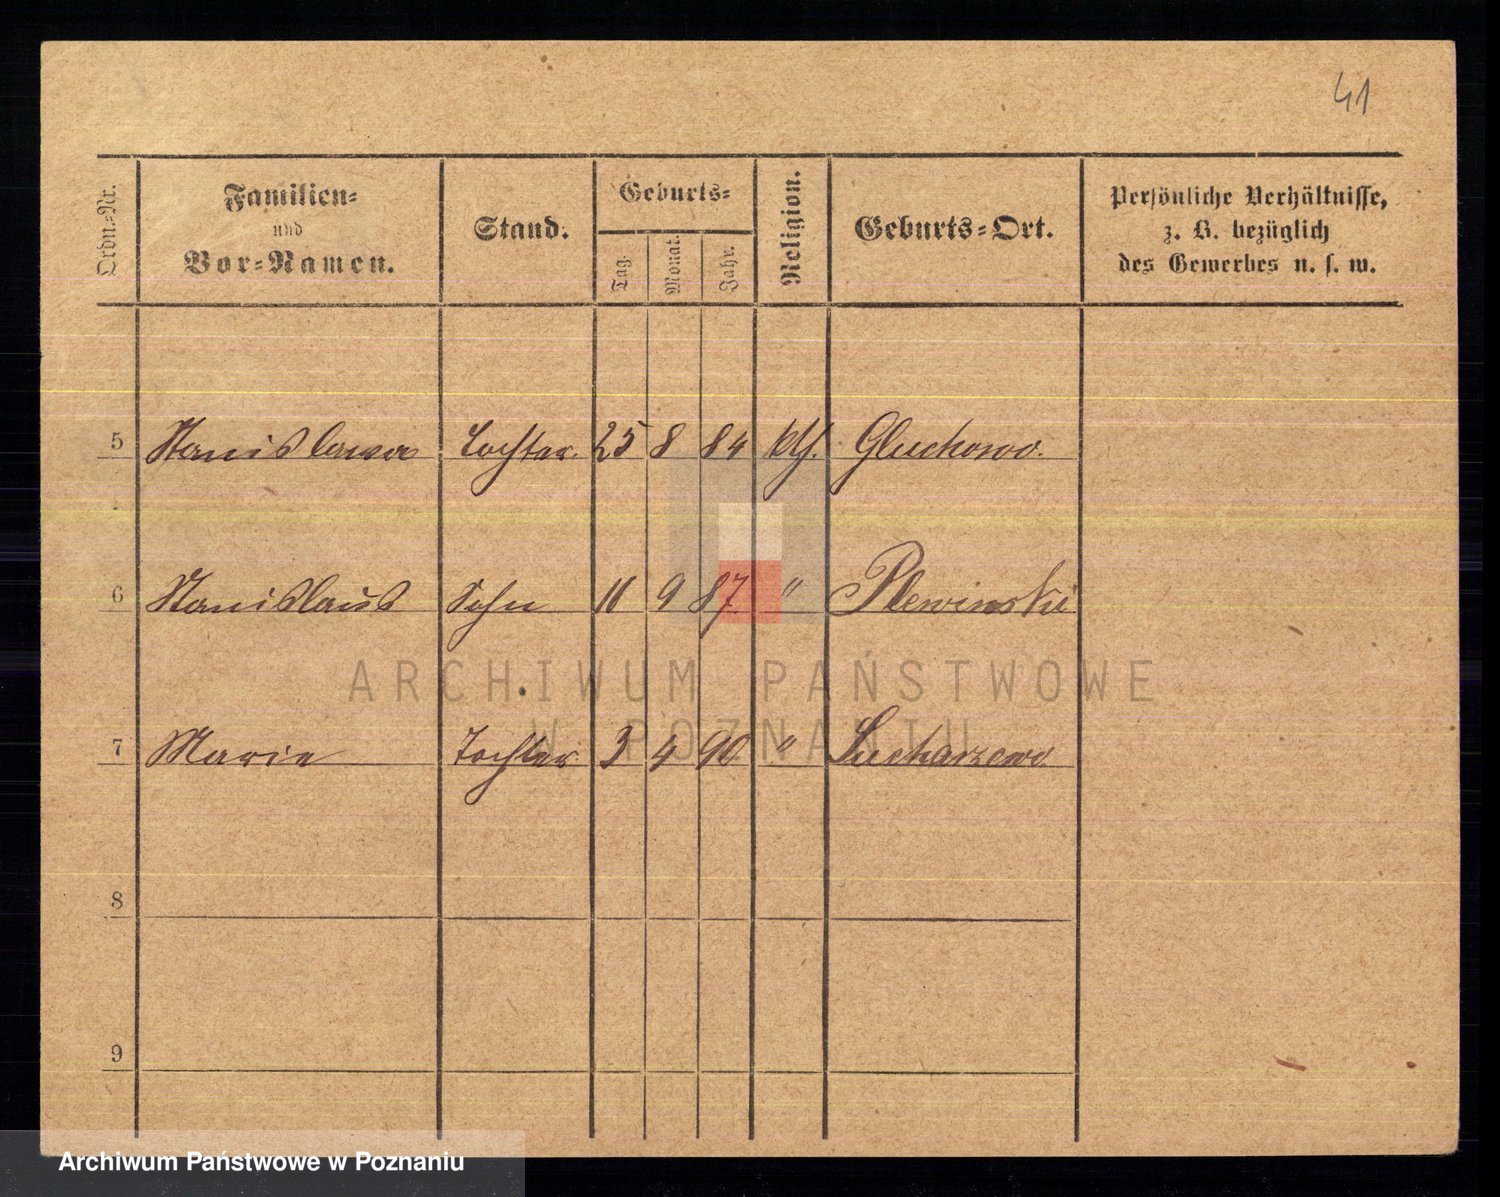 41
Ordn.=Nr. Familien= und Vor=Namen. Stand. Geburts= Tag. Monat. Jahr. Religion. Geburts=Ort. Persönliche Verhältnisse, z. B. bezüglich des Gewerbes u. s. w.
5 Stanislawa Tochter. 25 8 84 kth. Gluchowo.
6 Stanislaus Sohn 11 9 87 " Plewinskie
7 Marie Tochter 3 4 90 " Sucharzewo
8
9
ARCHIWUM PAŃSTWOWE
W POZNANIU
Archiwum Państwowe w Poznaniu